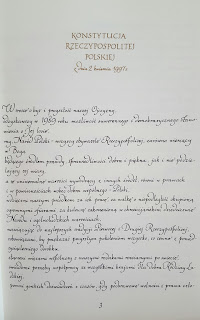 KONSTYTUCJA
RZECZYPOSPOLITEJ
POLSKIEJ
z dnia 2 kwietnia 1997 r.
W trosce o byt i przyszłość naszej Ojczyzny,
odzyskawszy w 1989 roku możliwość suwerennego i demokratycznego stano-
wienia o Jej losie,
my, Naród Polski - wszyscy obywatele Rzeczypospolitej, zarówno wierzący
w Boga
będącego źródłem prawdy, sprawiedliwości, dobra i piękna, jak i nie podzie-
lający tej wiary,
a te uniwersalne wartości wywodzący z innych źródeł, równi w prawach
i w powinnościach wobec dobra wspólnego - Polski,
wdzięczni naszym przodkom za ich pracę, za walkę o niepodległość okupioną
ogromnymi ofiarami, za kulturę zakorzenioną w chrześcijańskim dziedzictwie
Narodu i ogólnoludzkich wartościach,
nawiązując do najlepszych tradycji Pierwszej i Drugiej Rzeczypospolitej,
zobowiązani, by przekazać przyszłym pokoleniom wszystko, co cenne z ponad
tysiącletniego dorobku,
złączeni więzami wspólnoty z naszymi rodakami rozsianymi po świecie,
świadomi potrzeby współpracy ze wszystkimi krajami dla dobra Rodziny Lu-
dzkiej,
pomni gorzkich doświadczeń z czasów, gdy podstawowe wolności i prawa czło-
3